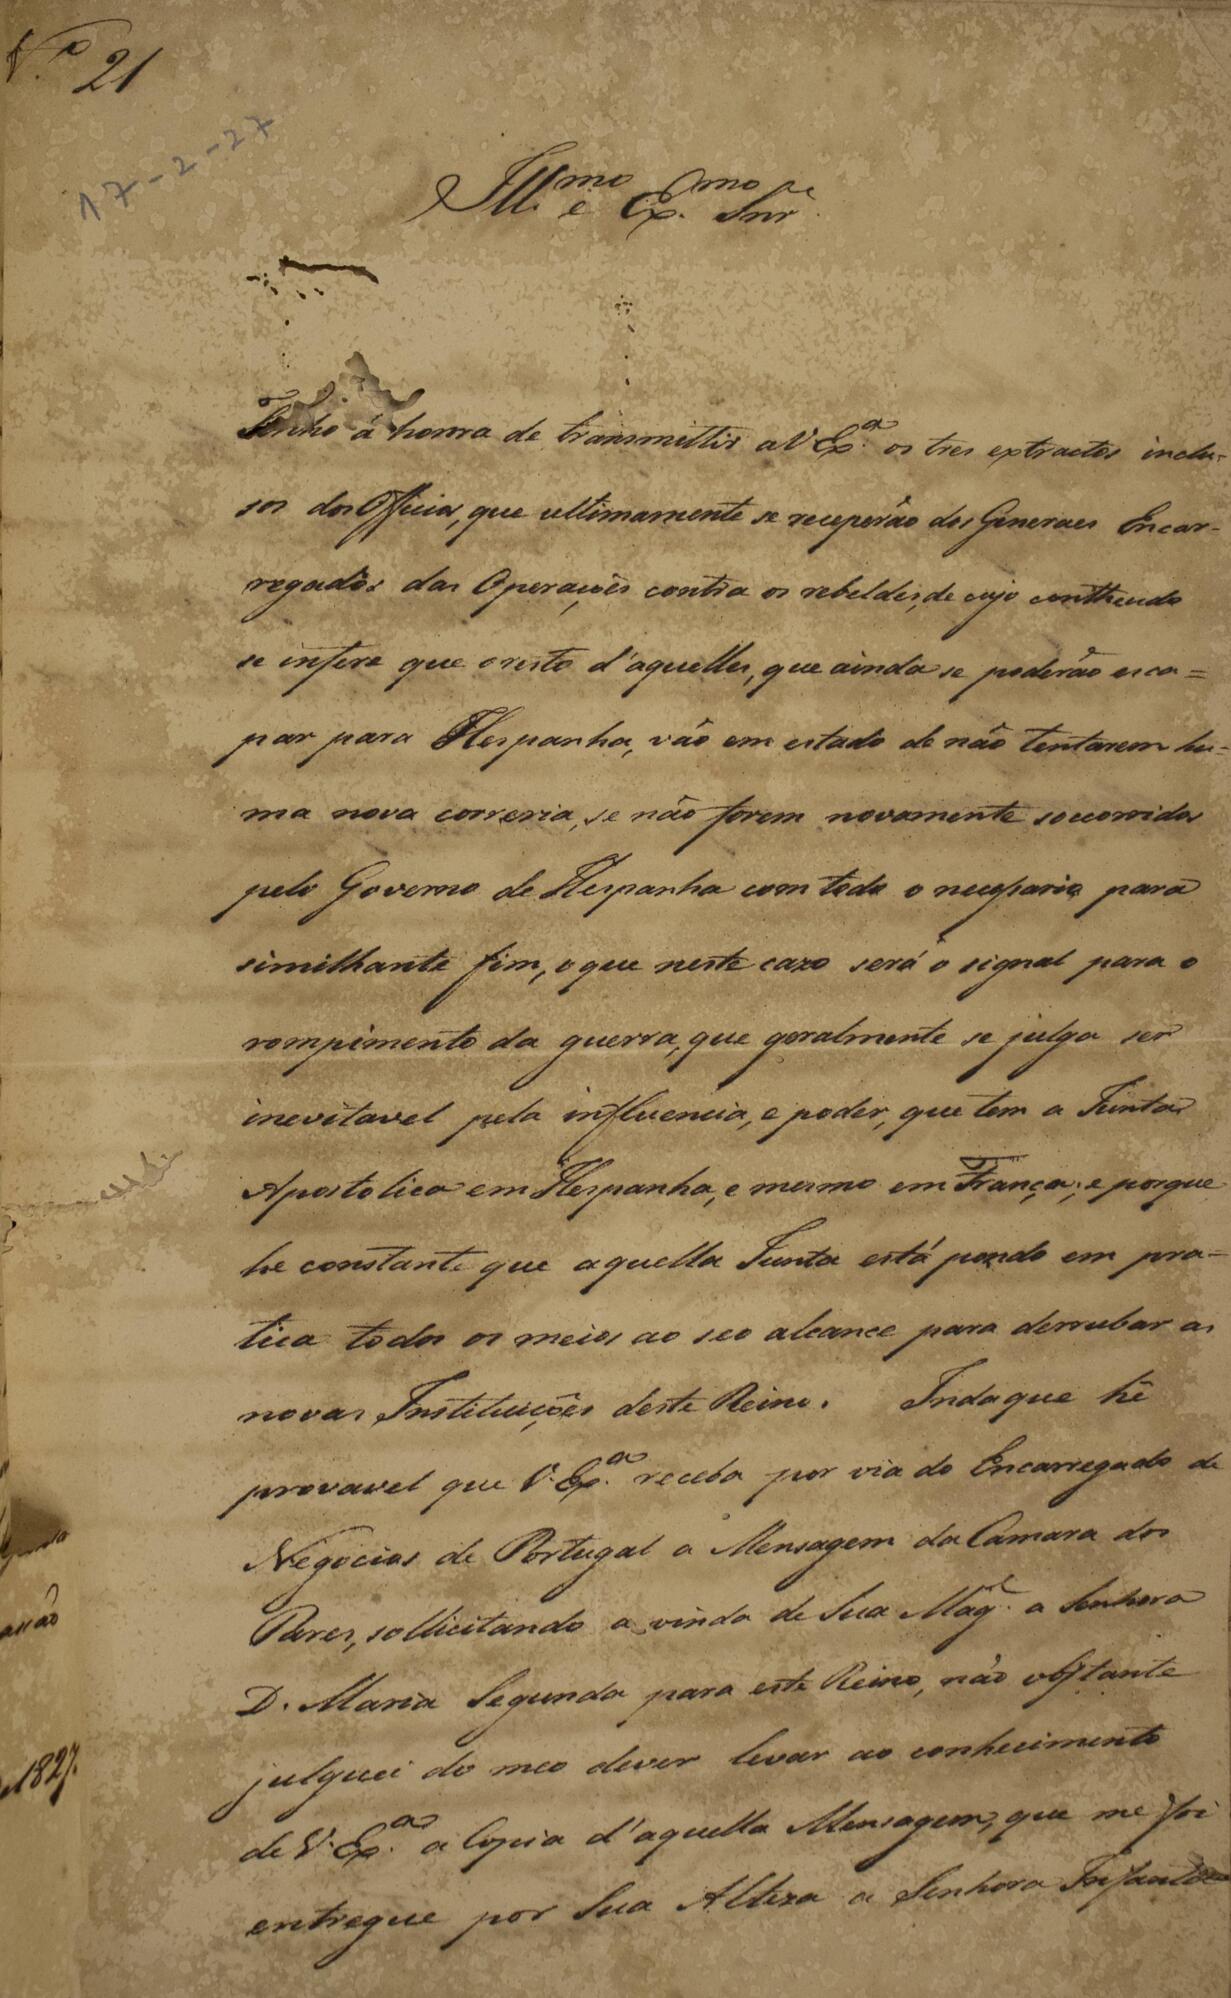 N.º 21
17-2-27
Ill.mo e Ex.mo Snr.
Tenho á honra de transmittir a V Ex.ª os tres extractos inclu-
sos dos Officios, que ultimamente se receperão dos Generaes Encar-
regados das Operações contra os rebeldes, de cujo conttheudo
se infere que o resto d'aquelles, que ainda se poderão esca=
par para Hespanha, vão em estado de não tentarem hu=
ma nova correria, se não forem novamente soccorridos
pelo Governo de Hespanha com todo o necessario para
similhante fim, o que neste cazo será o signal para o
rompimento da guerra, que geralmente se julga ser
inevitavel pela influencia, e poder, que tem a Junta
Apostolica em Hespanha, e mesmo em França; e porque
he constante que aquella Junta está pondo em pra=
tica todos os meios ao seo alcance para derrubar as
novas Instituições deste Reino. Indaque hé
provavel que V. Ex.ª receba por via do Encarregado de
Negocios de Portugal a Mensagem da Camara dos
Pares, sollicitando a vinda de Sua Mag.e a Senhora
D. Maria Segunda para este Reino, não obstante
julguei do meo dever levar ao conhecimento
de V. Ex.ª a Copia d'aquella Mensagem, que me foi
entregue por Sua Alteza a Senhora Infanta
1827.